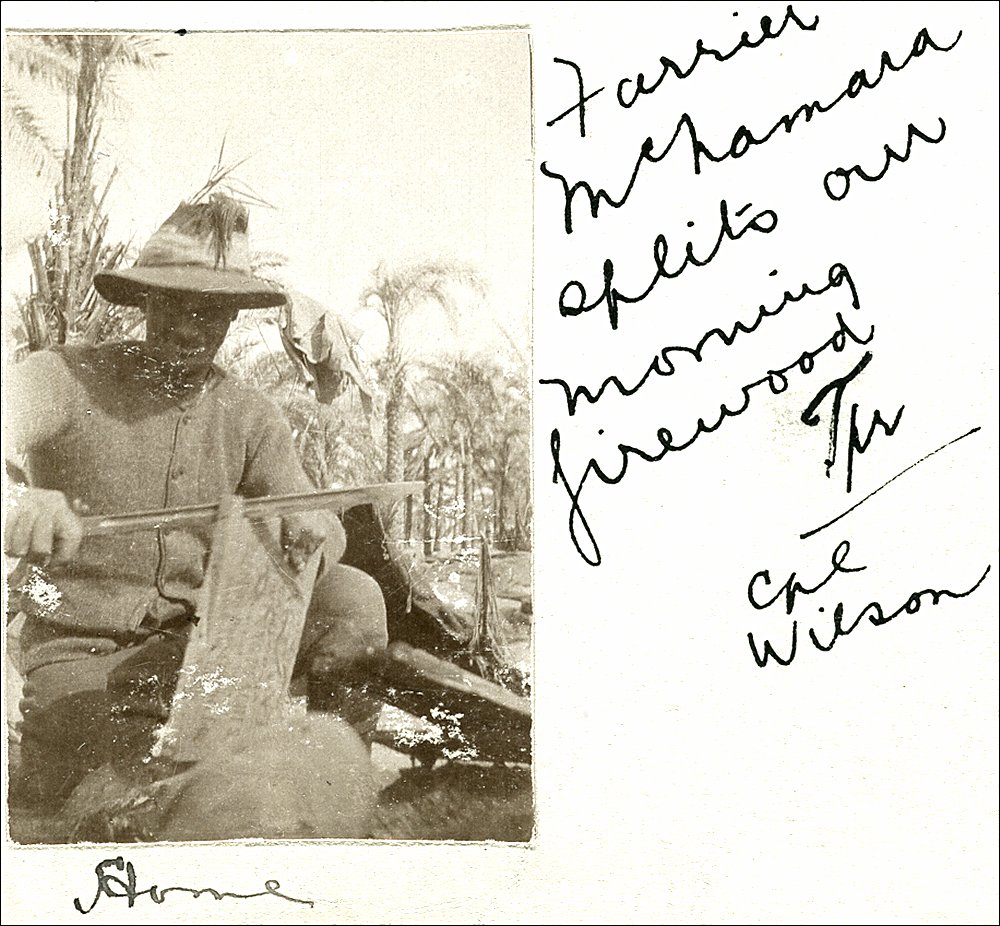 Farrier
McNamara
splits our
morning
firewood
Tpr
Cpl
Wilson
Home